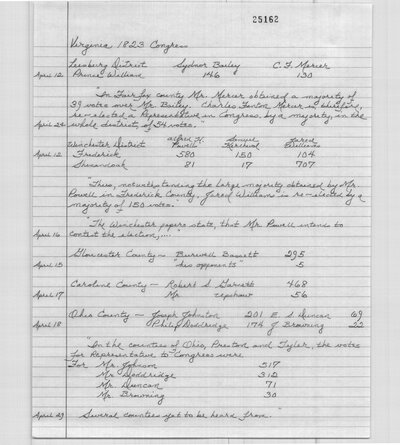 25162
Virginia 1823 Congress
Leesburg District Sydnor Bailey C. F. Mercer
April 12 Prince William 146 130
"In Fairfax county Mr. Mercer obtained a majority of
39 votes over Mr. Bailey. Charles Fenton Mercer is therefore,
re-elected a Representative in Congress, by a majority in the
April 24 whole district, of 54 votes."
Winchester District Alfred H. Powell Samuel Kercheval Jared Williams
April 12 Frederick 580 150 104
Shenandoah 21 17 707
"Thus, notwithstanding the large majority obtained by Mr.
Powell in Frederick County, Jared Williams is re-elected by a
majority of 150 votes."
"The Winchester papers state, that Mr. Powell intends to
April 16 contest the election,...."
Gloucester County - Burwell Bassett 295
April 15 "his opponents" 5
Caroline County - Robert S. Garnett 468
April 17 Mr. Upshaw 56
Ohio County - Joseph Johnston 201 E. S. Duncan 69
April 18 Philip Doddridge 174 J. Browning 22
"In the counties of Ohio, Preston and Tyler, the votes
for Representative to Congress were
For Mr. Johnson 517
Mr. Doddridge 312
Mr. Duncan 71
Mr. Browning 30
April 29 Several counties yet to be heard from."